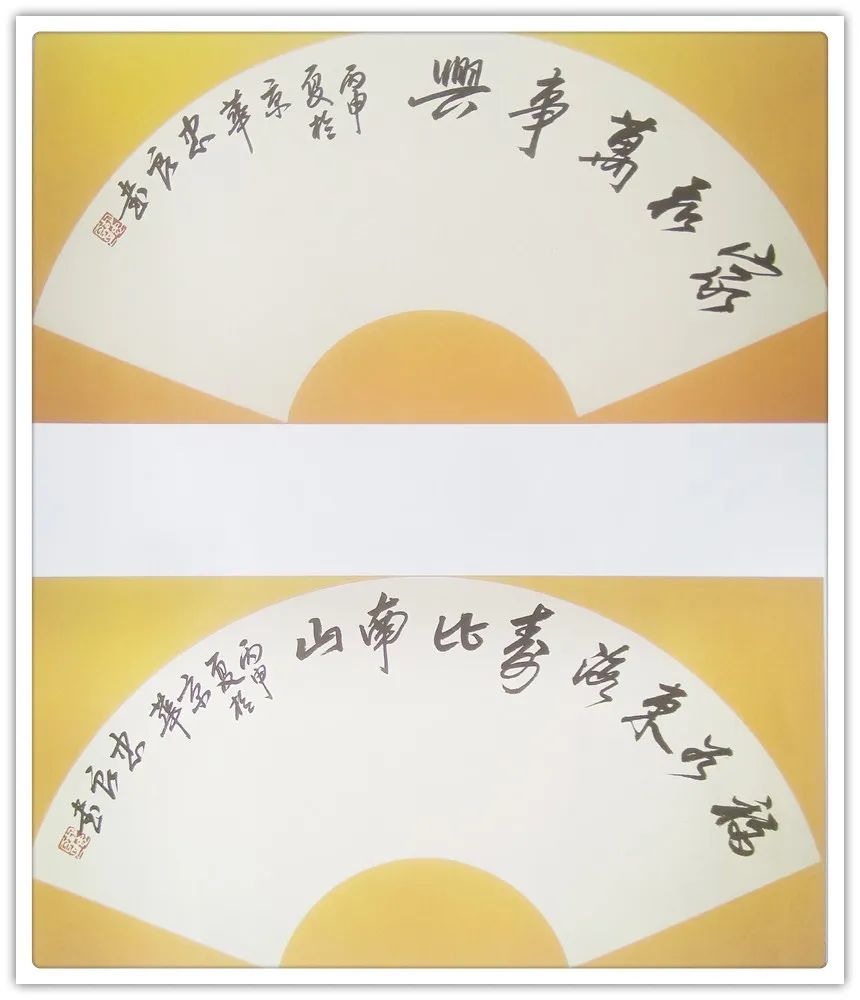 家和萬事興
丙申
夏於
京華忠良書
福如東海壽比南山
丙申
夏於
京華忠良書